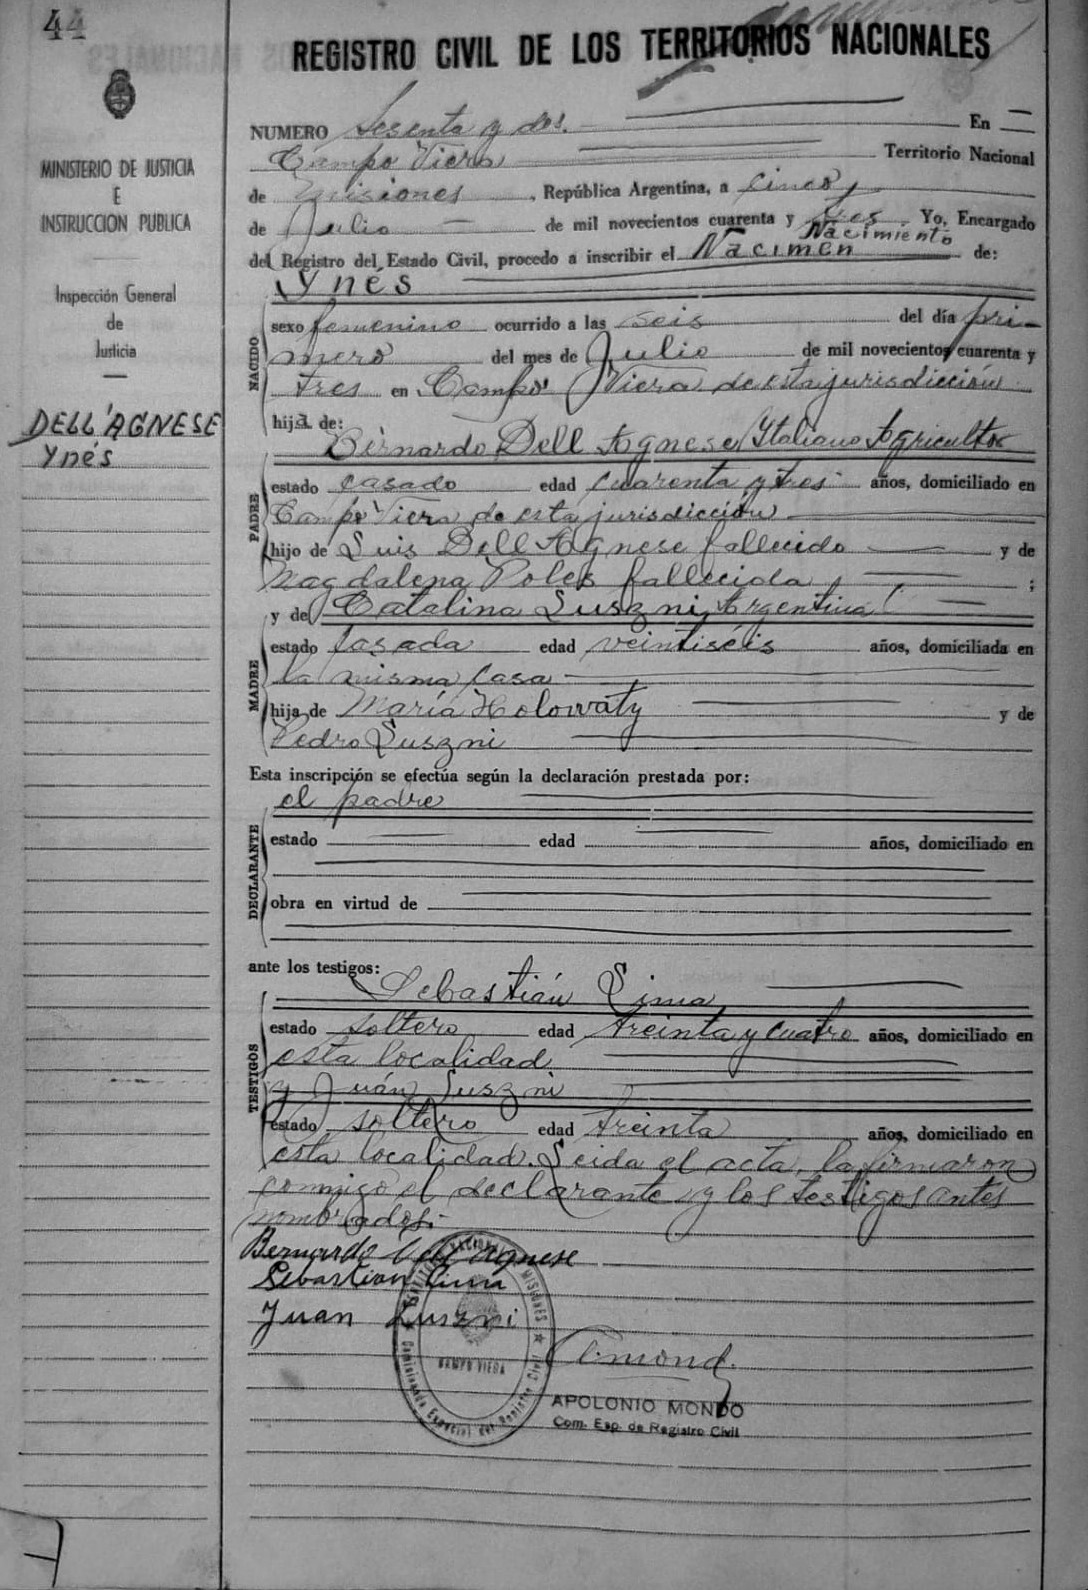 44
REGISTRO CIVIL DE LOS TERRITORIOS NACIONALES
MINISTERIO DE JUSTICIA
E
INSTRUCCION PUBLICA
Inspección General
de
Justicia
DELL'AGNESE
Ynés
NUMERO Sesenta y dos. En
Campo Viera Territorio Nacional
de Misiones, República Argentina, a cinco
de Julio de mil novecientos cuarenta y tres. Yo, Encargado
Nacimiento
del Registro del Estado Civil, procedo a inscribir el Nacimen de:
Ynés
NACIDO
sexo femenino ocurrido a las seis del día pri-
mero del mes de Julio de mil novecientos cuarenta y
tres en Campo Viera de esta jurisdicción
hija de:
Bernardo Dell Agnese Italiano Agricultor
PADRE
estado casado edad cuarenta y tres años, domiciliado en
Campo Viera de esta jurisdicción
hijo de Luis Dell Agnese fallecido y de
Magdalena Poles fallecida ;
y de Catalina Luszni, Argentina
MADRE
estado casada edad veintiséis años, domiciliada en
la misma casa
hija de María Holowaty y de
Pedro Luszni
Esta inscripción se efectúa según la declaración prestada por:
el padre
DECLARANTE
estado edad años, domiciliado en
obra en virtud de
ante los testigos:
Sebastián Lima
TESTIGOS
estado soltero edad treinta y cuatro años, domiciliado en
esta localidad
y Juán Luszni
estado soltero edad treinta años, domiciliado en
esta localidad. Leida el acta, la firmaron
conmigo el declarante y los testigos antes
nombrados.
Bernardo Dell Agnese
Sebastian Lima
Juan Luszni
CAMPO VIERA
APOLONIO MONDO
Com. Esp. de Registro Civil